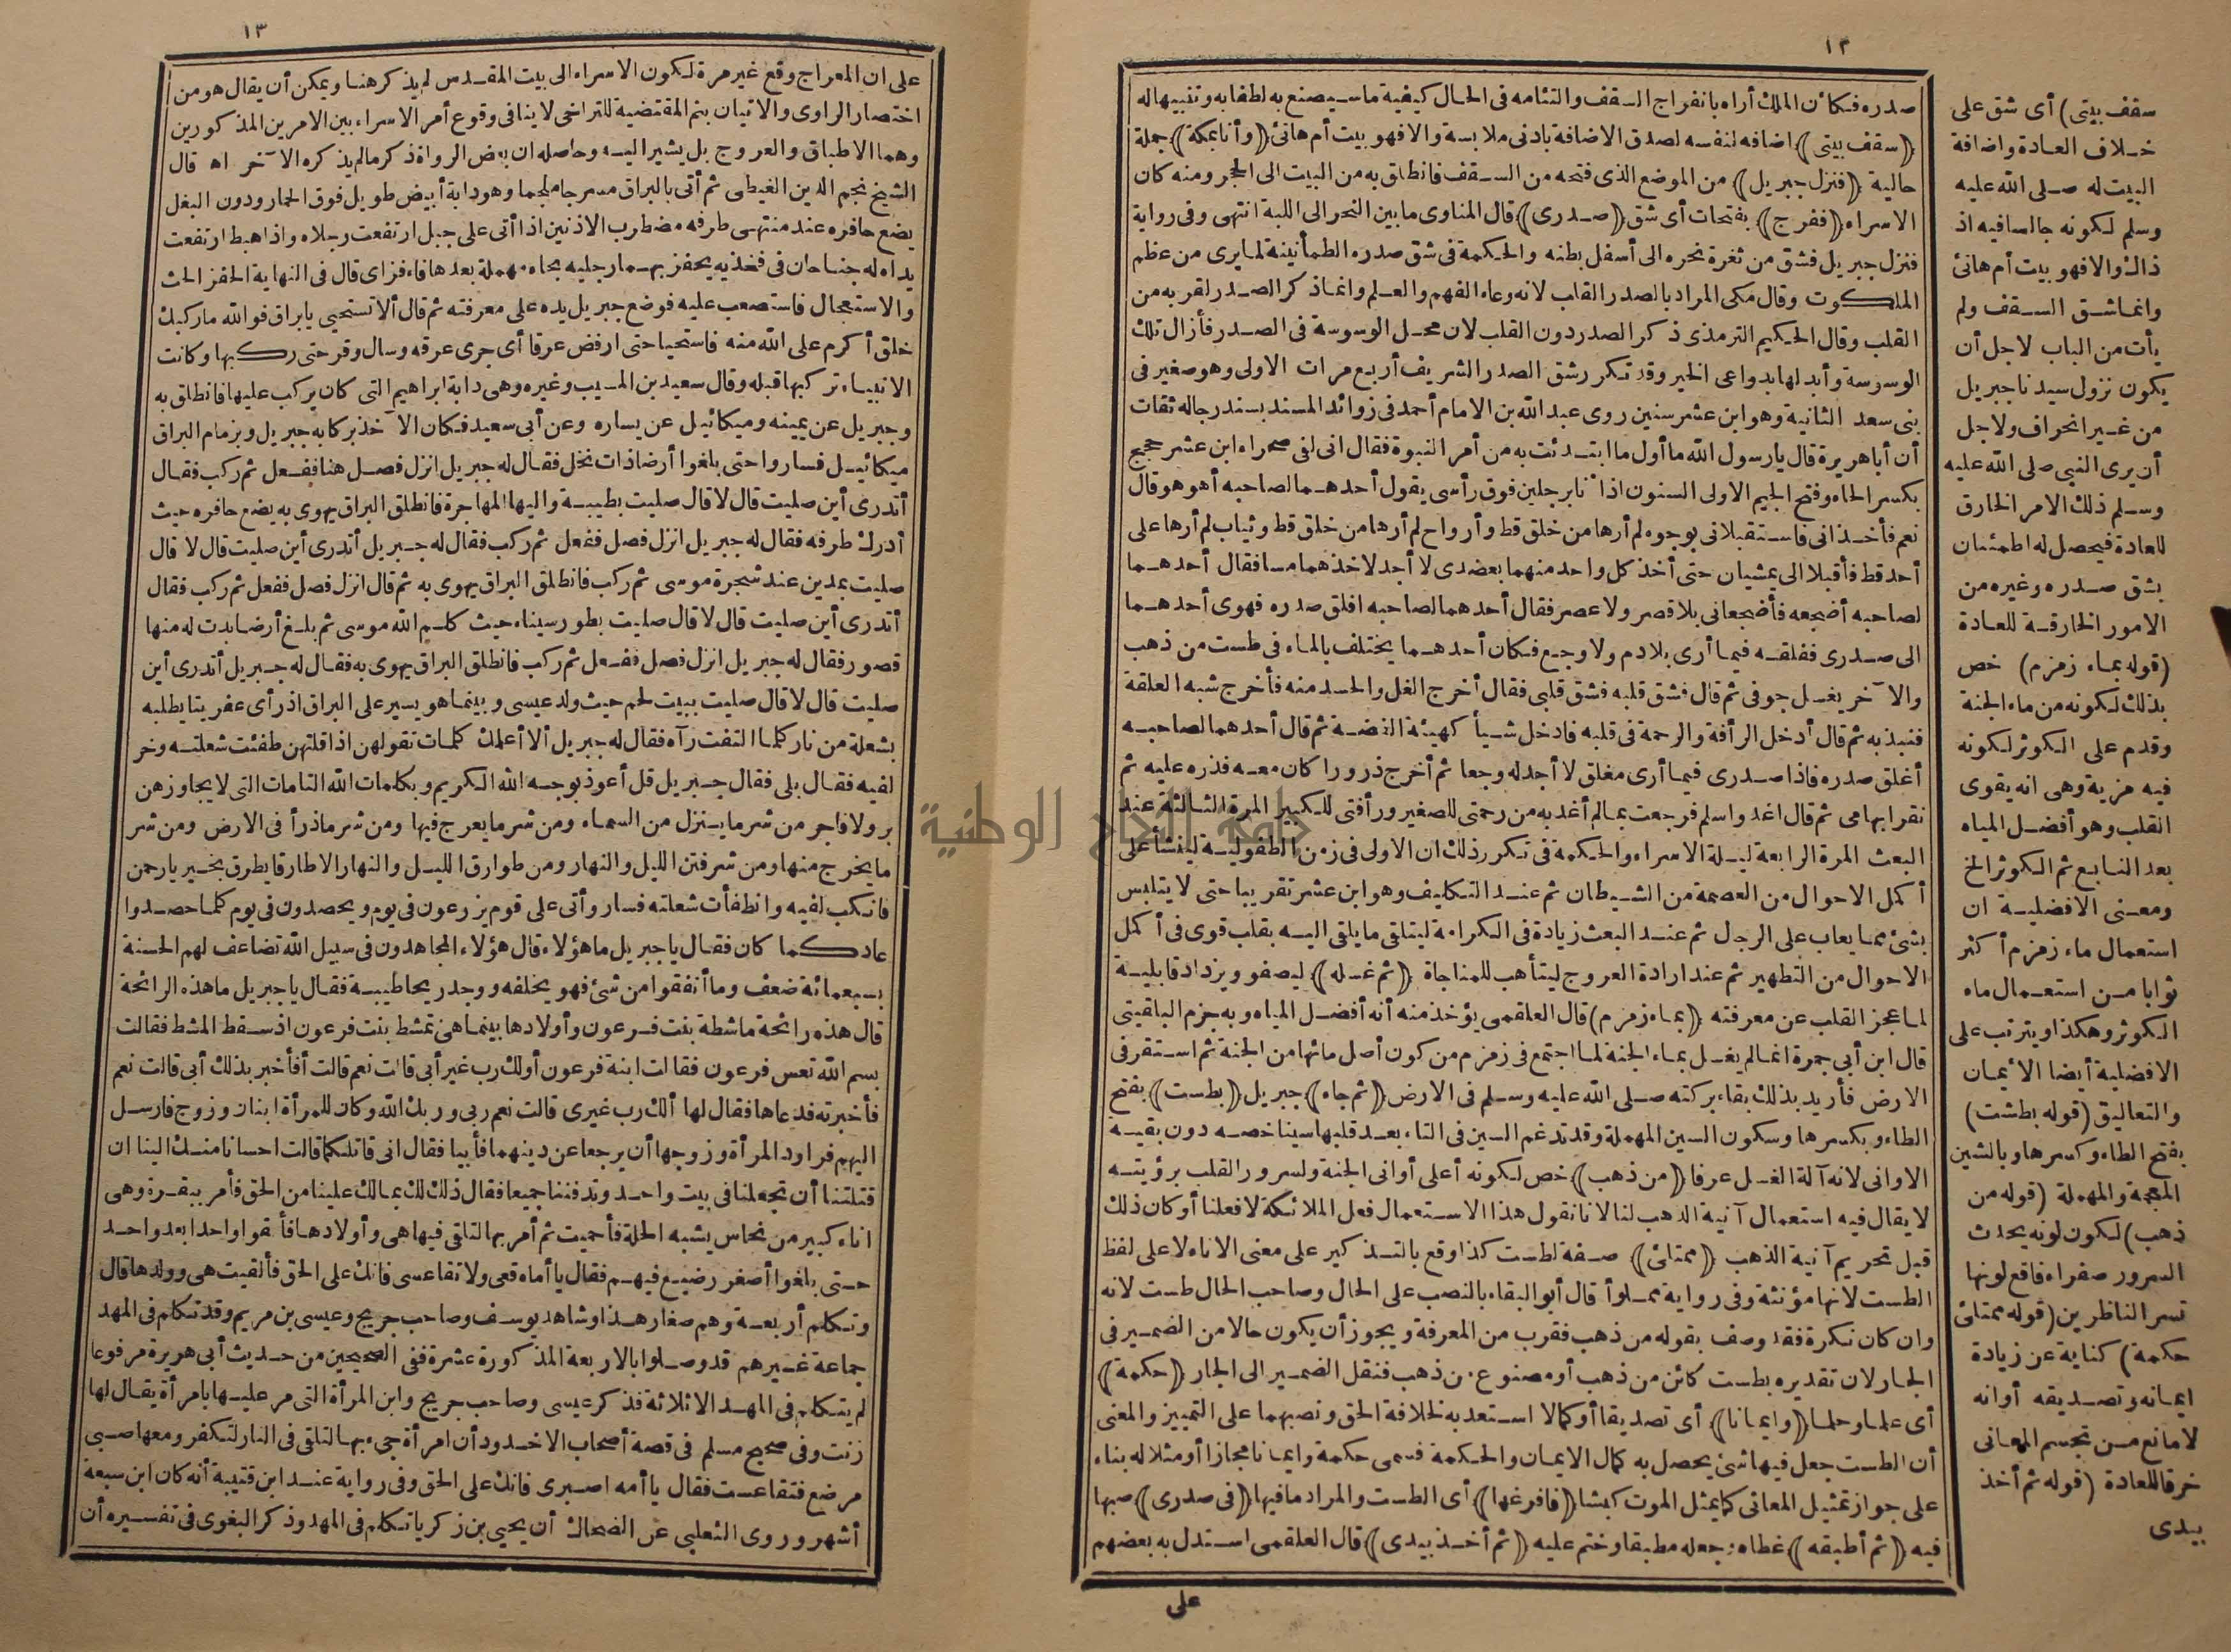 ١٢
صدره فكأن الملك أراه بانفراج السقف والتئامه في الحال كيفية ماسيصنع به لطفابه وتنبيهاله
﴿سقف بيتي﴾ اضافه لنفسه لصدق الاضافة بادنى ملابسة والافهو بيت أم هانئ ﴿وأنابمكة﴾ جملة
حالية ﴿فنزل جبريل﴾ من الموضع الذى فتحه من السقف فانطلق به من البيت الى الحجر ومنه كان
الاسراء ﴿ففرج﴾ بفتحات أى شق ﴿صدرى﴾ قال المناوى مابين النحر الى اللبة انتهى وفى رواية
فنزل جبريل فشق من ثغرة نحره الى أسفل بطنه والحكمة فى شق صدره الطمأنينة لمايرى من عظم
الملكوت وقال مكى المراد بالصدر القلب لانه وعاء الفهم والعلم وانماذكر الصدر لقربه من
القلب وقال الحكيم الترمذى ذكر الصدردون القلب لان محل الوسوسة فى الصدر فأزال تلك
الوسوسة وأبدلها بدواعى الخير وقد تكرر شق الصدر الشريف أربع مرات الاولى وهو صغير فى
بنى سعد الثانية وهو ابن عشر سنين روى عبد الله بن الامام أحمد فى زوائد المسند بسند رجاله ثقات
أن أباهريرة قال يارسول الله ماأول ماابتدئت به من أمر النبوة فقال انى لفى صحراء ابن عشر حجج
بكسر الحاء وفتح الجيم الاولى السنون اذا أنا برجلين فوق رأسى يقول أحدهما لصاحبه أهو هو قال
نعم فأخذانى فاستقبلانى بوجوه لم أرها من خلق قط وأرواح لم أرها من خلق قط وثياب لم أرها على
أحد قط فأقبلا الى يمشيان حتى أخذ كل واحد منهما بعضدى لا أجد لاخذهما مسا فقال أحدهما
لصاحبه أضجعه فأضجعانى بلا قصر ولا عصر فقال أحدهما لصاحبه افلق صدره فهوى أحدهما
الى صدرى ففلقه فيما أرى بلادم ولا وجع فكان أحدهما يختلف بالماء فى طست من ذهب
والآخر يغسل جوفى ثم قال فشق قلبه فشق قلبى فقال أخرج الغل والحسد منه فأخرج شبه العلقة
فنبذ به ثم قال أدخل الرأفة والرحمة فى قلبه فادخل شيأ كهيئة الفضة ثم قال أحدهما لصاحبه
أغلق صدره فاذا صدرى فيما أرى مغلق لا أجد له وجعا ثم أخرج ذرورا كان معه فذره عليه ثم
نقر ابهامى ثم قال اغد واسلم فرجعت بمالم أغد به من رحمتى للصغير ورأفتى للكبير المرة الثالثة عند
البعث المرة الرابعة ليلة الاسراء والحكمة فى تكرر ذلك ان الاولى فى زمن الطفولية لينشأ على
أكمل الاحوال من العصمة من الشيطان ثم عند التكليف وهو ابن عشر تقريبا حتى لا يتلبس
بشئ مما يعاب على الرجل ثم عند البعث زيادة فى الكرامة ليتلقى مايلقى اليه بقلب قوى فى أكمل
الاحوال من التطهير ثم عند ارادة العروج ليتأهب للمناجاة ﴿ثم غسله﴾ ليصفو ويزداد قابلية
لما عجز القلب عن معرفته ﴿بماء زمزم﴾ قال العلقمى يؤخذ منه أنه أفضل المياه وبه جزم البلقينى
قال ابن أبى جمرة انمالم يغسل بماء الجنة لما اجتمع فى زمزم من كون أصل مائها من الجنة ثم استقر فى
الارض فأريد بذلك بقاء بركته صلى الله عليه وسلم فى الارض ﴿ثم جاء﴾ جبريل ﴿بطست﴾ بفتح
الطاء وبكسرها وسكون السين المهملة وقد تدغم السين فى التاء بعد قلبها سينا خصه دون بقيه
الاوانى لانه آلة الغسل عرفا ﴿من ذهب﴾ خص لكونه أعلى أوانى الجنة ولسرور القلب برؤيته
لا يقال فيه استعمال آنية الذهب لنا لانا نقول هذا الاستعمال فعل الملائكة لا فعلنا أو كان ذلك
قبل تحريم آنية الذهب ﴿ممتلئ﴾ صفة لطست كذا وقع بالتذكير على معنى الاناء لا على لفظ
الطست لانها مؤنثة وفى رواية مملوأ قال أبو البقاء بالنصب على الحال وصاحب الحال طست لانه
وان كان نكرة فقد وصف بقوله من ذهب فقرب من المعرفة ويجوز أن يكون حالا من الضمير فى
الجار لان تقديره بطست كائن من ذهب أو مصنوع من ذهب فنقل الضمير الى الجار ﴿حكمة﴾
أى علما وحلما ﴿وايمانا﴾ أى تصديقا أو كمالا استعد به لخلافة الحق ونصبهما على التمييز والمعنى
أن الطست جعل فيها شئ يحصل به كمال الايمان والحكمة فسمى حكمة وايمانا مجازا أو مثلا له بناء
على جواز تمثيل المعانى كما يمثل الموت كبشا ﴿فافرغها﴾ أى الطست والمراد مافيها ﴿فى صدرى﴾ صبها
فيه ﴿ثم أطبقه﴾ غطاه وجعله مطبقا وختم عليه ﴿ثم أخذ بيدى﴾ قال العلقمى استدل به بعضهم
على
سقف بيتى) أى شق على
خلاف العادة واضافة
البيت له صلى الله عليه
وسلم لكونه جالسا فيه اذ
ذاك والافهو بيت أم هانئ
وانماشق السقف ولم
يأت من الباب لاجل أن
يكون نزول سيدنا جبريل
من غير انحراف ولاجل
أن يرى النبى صلى الله عليه
وسلم ذلك الامر الخارق
للعادة فيحصل له اطمئنان
بشق صدره وغيره من
الامور الخارقة للعادة
(قوله بماء زمزم) خص
بذلك لكونه من ماء الجنة
وقدم على الكوثر لكونه
فيه مزية وهى انه يقوى
القلب وهو أفضل المياه
بعد النابع ثم الكوثر الخ
ومعنى الافضلية ان
استعمال ماء زمزم أكثر
ثوابا من استعمال ماء
الكوثر وهكذا ويترتب على
الافضلية أيضا الأيمان
والتعاليق (قوله بطشت)
بفتح الطاء وكسرها وبالشين
المعجمة والمهملة (قوله من
ذهب) لكون لونه يحدث
السرور صفراء فاقع لونها
تسر الناظرين (قوله ممتلئ
حكمة) كناية عن زيادة
ايمانه وتصديقه أو انه
لا مانع من تجسم المعانى
خرقا للعادة (قوله ثم أخذ
بيدى
١٣
على ان المعراج وقع غير مرة لكون الاسراء الى بيت المقدس لم يذكر هنا ويمكن أن يقال هو من
اختصار الراوى والاتيان بثم المقتضية للتراخى لا ينافى وقوع أمر الاسراء بين الامرين المذكورين
وهما الاطباق والعروج بل يشير اليه وحاصله ان بعض الرواة ذكر مالم يذكره الآخر اه قال
الشيخ نجم الدين الغيطى ثم أتى بالبراق مسرجا ملجما وهو دابة أبيض طويل فوق الحمار ودون البغل
يضع حافره عند منتهى طرفه مضطرب الاذنين اذا أتى على جبل ارتفعت رجلاه واذا هبط ارتفعت
يداه له جناحان فى فخذيه يحفز بهما رجليه بحاء مهملة بعدها فاء فزاى قال فى النهاية الحفز الحث
والاستعجال فاستصعب عليه فوضع جبريل يده على معرفته ثم قال ألا تستحيى يابراق فوالله ماركبك
خلق أكرم على الله منه فاستحيا حتى ارفض عرقا أى جرى عرقه وسال وقر حتى ركبها وكانت
الانبياء تركبها قبله وقال سعيد بن المسيب وغيره وهى دابة ابراهيم التى كان يركب عليها فانطلق به
وجبريل عن يمينه وميكائيل عن يساره وعن أبى سعيد فكان الآخذ بركابه جبريل وبزمام البراق
ميكائيل فساروا حتى بلغوا أرضا ذات نخل فقال له جبريل انزل فصل هنا ففعل ثم ركب فقال
أتدرى أين صليت قال لا قال صليت بطيبة واليها المهاجرة فانطلق البراق يهوى به يضع حافره حيث
أدرك طرفه فقال له جبريل انزل فصل ففعل ثم ركب فقال له جبريل أتدرى أين صليت قال لا قال
صليت بمدين عند شجرة موسى ثم ركب فانطلق البراق يهوى به ثم قال انزل فصل ففعل ثم ركب فقال
أتدرى أين صليت قال لا قال صليت بطور سيناء حيث كلم الله موسى ثم بلغ أرضا بدت له منها
قصور فقال له جبريل انزل فصل ففعل ثم ركب فانطلق البراق يهوى به فقال له جبريل أتدرى أين
صليت قال لا قال صليت ببيت لحم حيث ولد عيسى وبينما هو يسير على البراق اذ رأى عفريتا يطلبه
بشعلة من نار كلما التفت رآه فقال له جبريل ألا أعلمك كلمات تقولهن اذا قلتهن طفئت شعلته وخر
لفيه فقال بلى فقال جبريل قل أعوذ بوجه الله الكريم وبكلمات الله التامات التى لا يجاوزهن
بر ولا فاجر من شر ماينزل من السماء ومن شر مايعرج فيها ومن شر ماذرأ فى الارض ومن شر
مايخرج منها ومن شر فتن الليل والنهار ومن طوارق الليل والنهار الا طارقا يطرق بخير يارحمن
فانكب لفيه وانطفأت شعلته فسار وأتى على قوم يزرعون فى يوم ويحصدون فى يوم كلما حصدوا
عاد كما كان فقال ياجبريل ماهؤلاء قال هؤلاء المجاهدون فى سبيل الله تضاعف لهم الحسنة
بسبعمائة ضعف وما أنفقوا من شئ فهو يخلفه ووجد ريحا طيبة فقال ياجبريل ماهذه الرائحة
قال هذه رائحة ماشطة بنت فرعون وأولادها بينما هى تمشط بنت فرعون اذ سقط المشط فقالت
بسم الله تعس فرعون فقالت ابنة فرعون أولك رب غير أبى قالت نعم قالت أفأخبر بذلك أبى قالت نعم
فأخبرته فدعاها فقال لها ألك رب غيرى قالت نعم ربى وربك الله وكان للمرأة ابنان وزوج فارسل
اليهم فراود المرأة وزوجها أن يرجعا عن دينهما فأبيا فقال انى قاتلكما قالت احسانا منك الينا ان
قتلتنا أن تجعلنا فى بيت واحد وتدفننا جميعا فقال ذلك لك بمالك علينا من الحق فأمر ببقرة وهى
اناء كبير من نحاس يشبه الحلة فأحميت ثم أمر بها لتلقى فيها هى وأولادها فألقوا واحدا بعد واحد
حتى بلغوا أصغر رضيع فيهم فقال يا أماه قعى ولا تقاعسى فانك على الحق فألقيت هى وولدها قال
وتكلم أربعة وهم صغار هذا وشاهد يوسف وصاحب جريج وعيسى بن مريم وقد تكلم فى المهد
جماعة غيرهم قد وصلوا بالاربعة المذكورة عشرة ففى الصحيحين من حديث أبى هريرة مرفوعا
لم يتكلم فى المهد الا ثلاثة فذكر عيسى وصاحب جريج وابن المرأة التى مر عليها بامرأة يقال لها
زنت وفى صحيح مسلم فى قصة أصحاب الاخدود أن امرأة جىء بها لتلقى فى النار لتكفر ومعها صبى
مرضع فتقاعست فقال يا أمه اصبرى فانك على الحق وفى رواية عند ابن قتيبة أنه كان ابن سبعة
أشهر وروى الثعلبى عن الضحاك أن يحيى بن زكريا تكلم فى المهد وذكر البغوى فى تفسيره أن
جامعة النجاح الوطنية